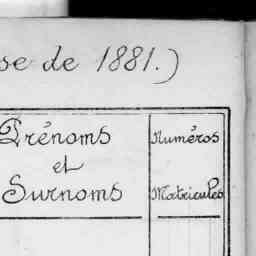 se de 1881.)
Prénoms
et
Surnoms
Numéros
Matricules